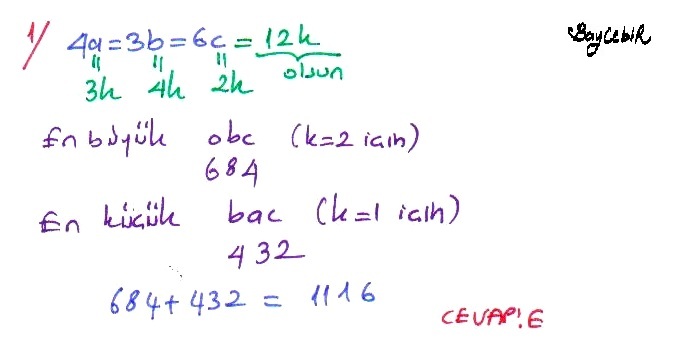 1/ 4a=3b=6c=12k
BayCebir
3k 4k 2k olsun
En büyük abc (k=2 için)
684
En küçük bac (k=1 için)
432
684+432 = 1116
CEVAP:E